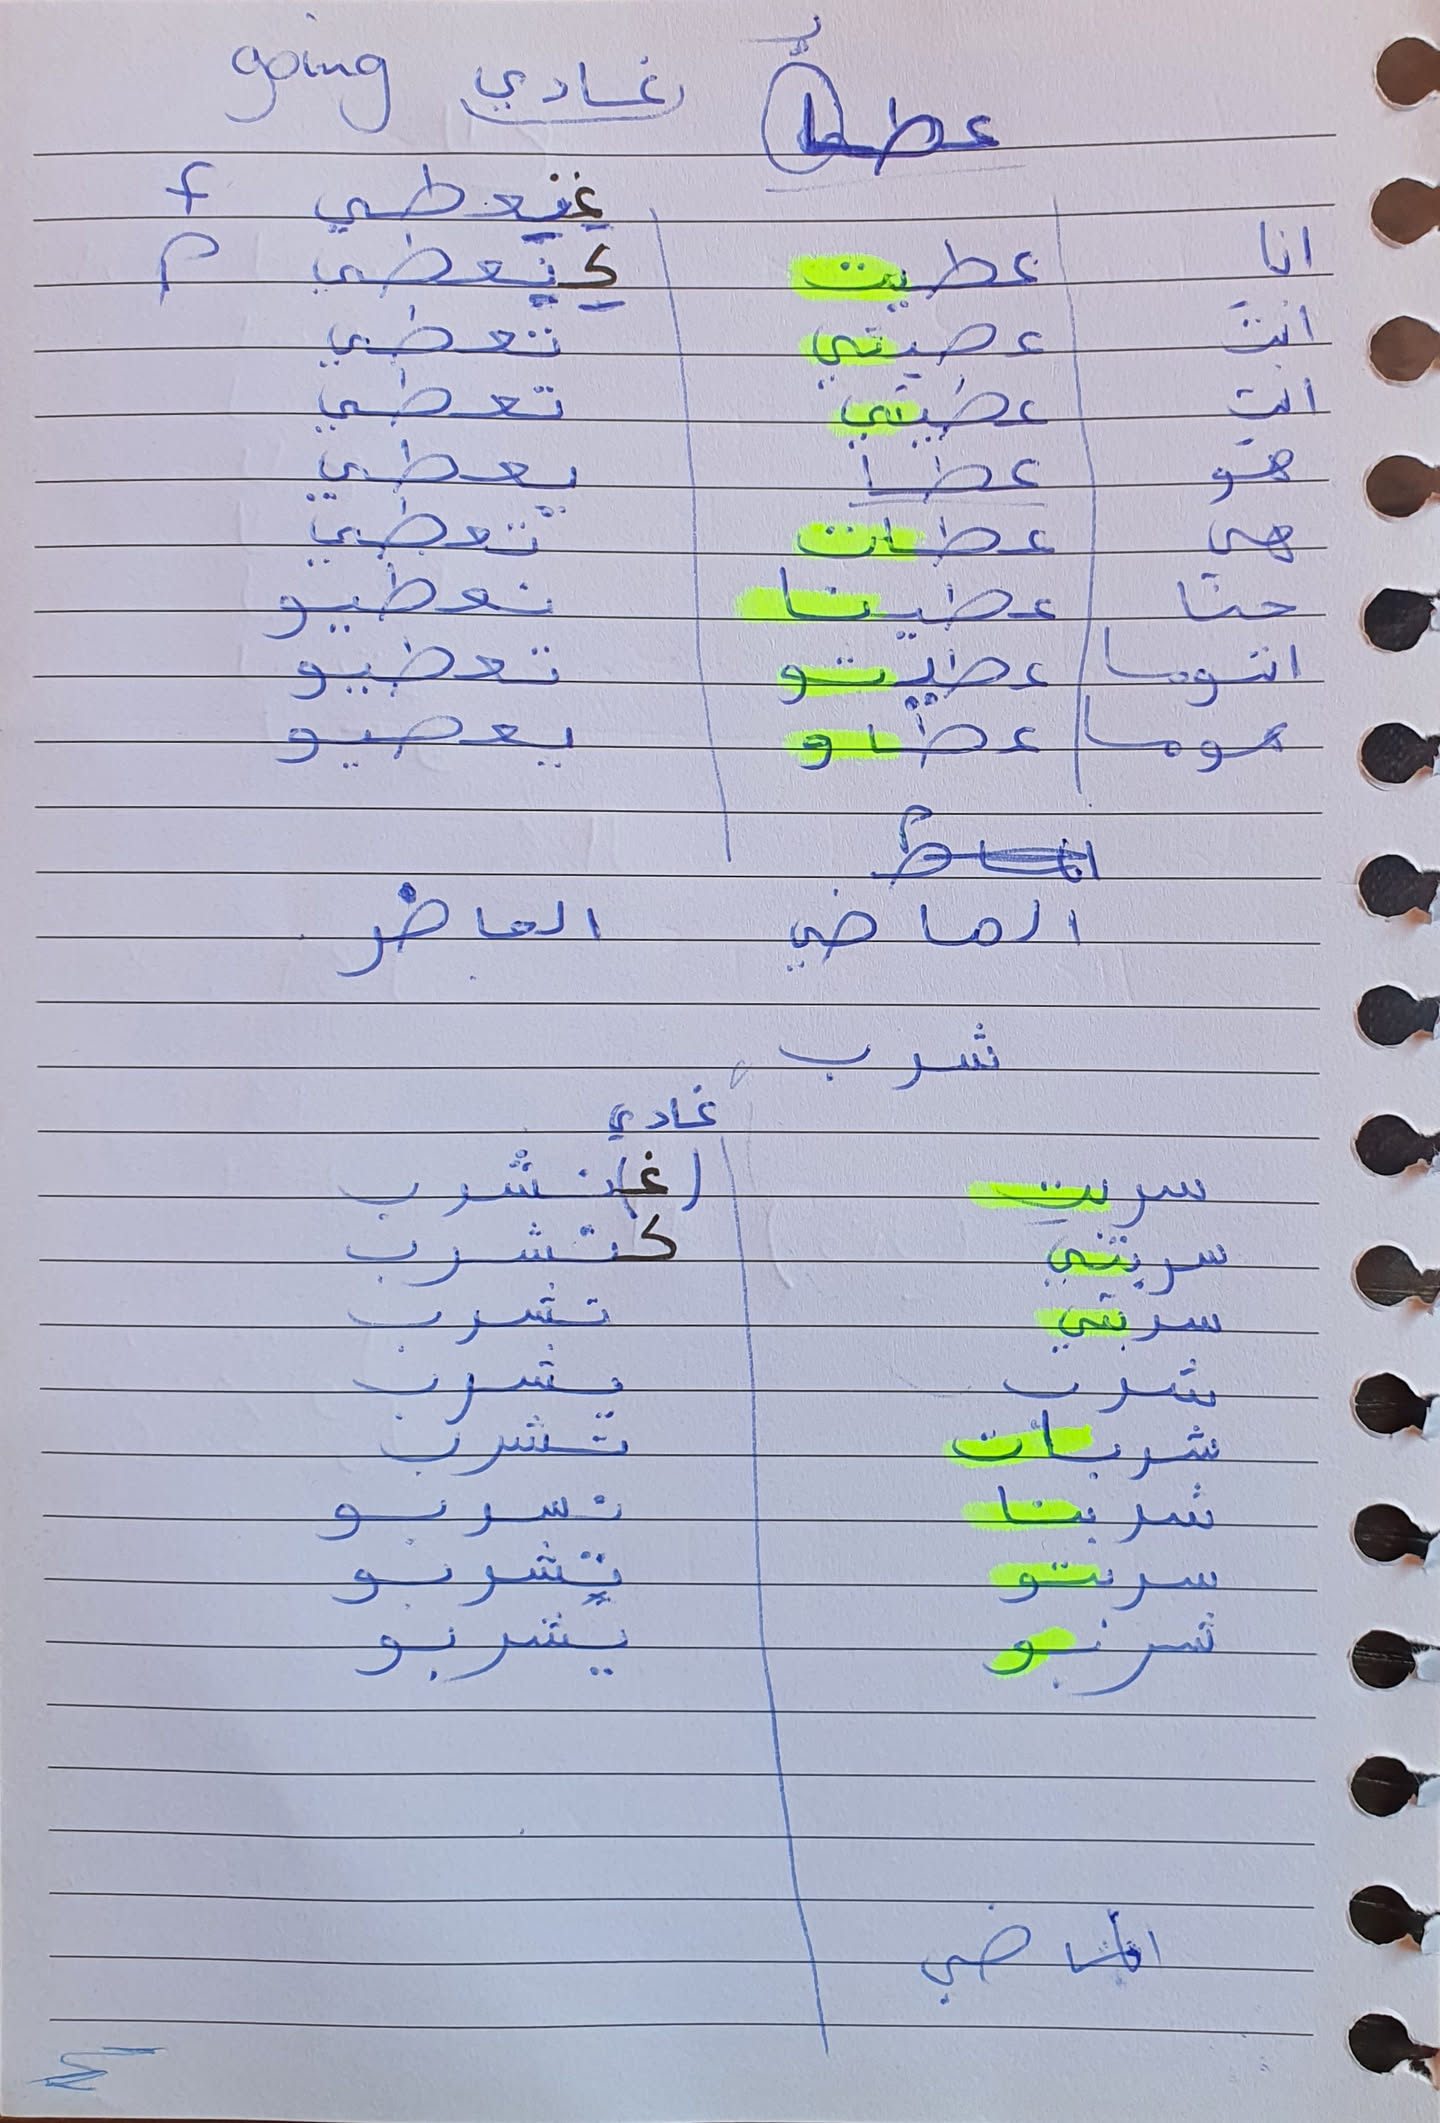 عطا غادي going
غنعطي f
انا عطيت كنعطي p
انتَ عصيتي تعطي
انتِ عطيتي تعطي
هو عطا يعطي
هي عطات تعطي
حنا عطينا نعطيو
انتوما عطيتو تعطيو
هوما عطاو يعصيو
الماضي الحاضر
شرب
غادي
سربت (غا)نشرب
سربتي كتشرب
سربتي تشرب
شرب يشرب
شربات تشرب
شربنا نسربو
سربتو تشربو
شربو يشربو
الماضي